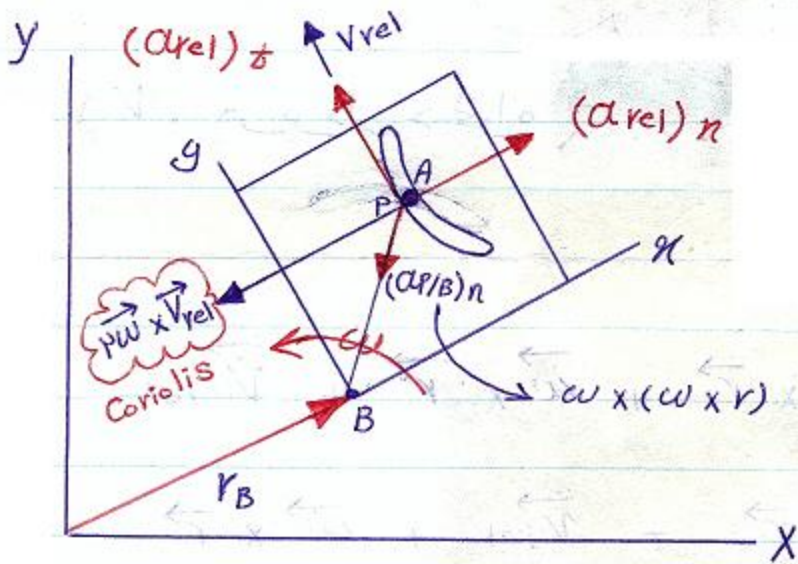 y
(arel)t
Vrel
(arel)n
y
A
P
x
(aP/B)n
2ω x Vrel
Coriolis
ω
ω x (ω x r)
B
rB
X